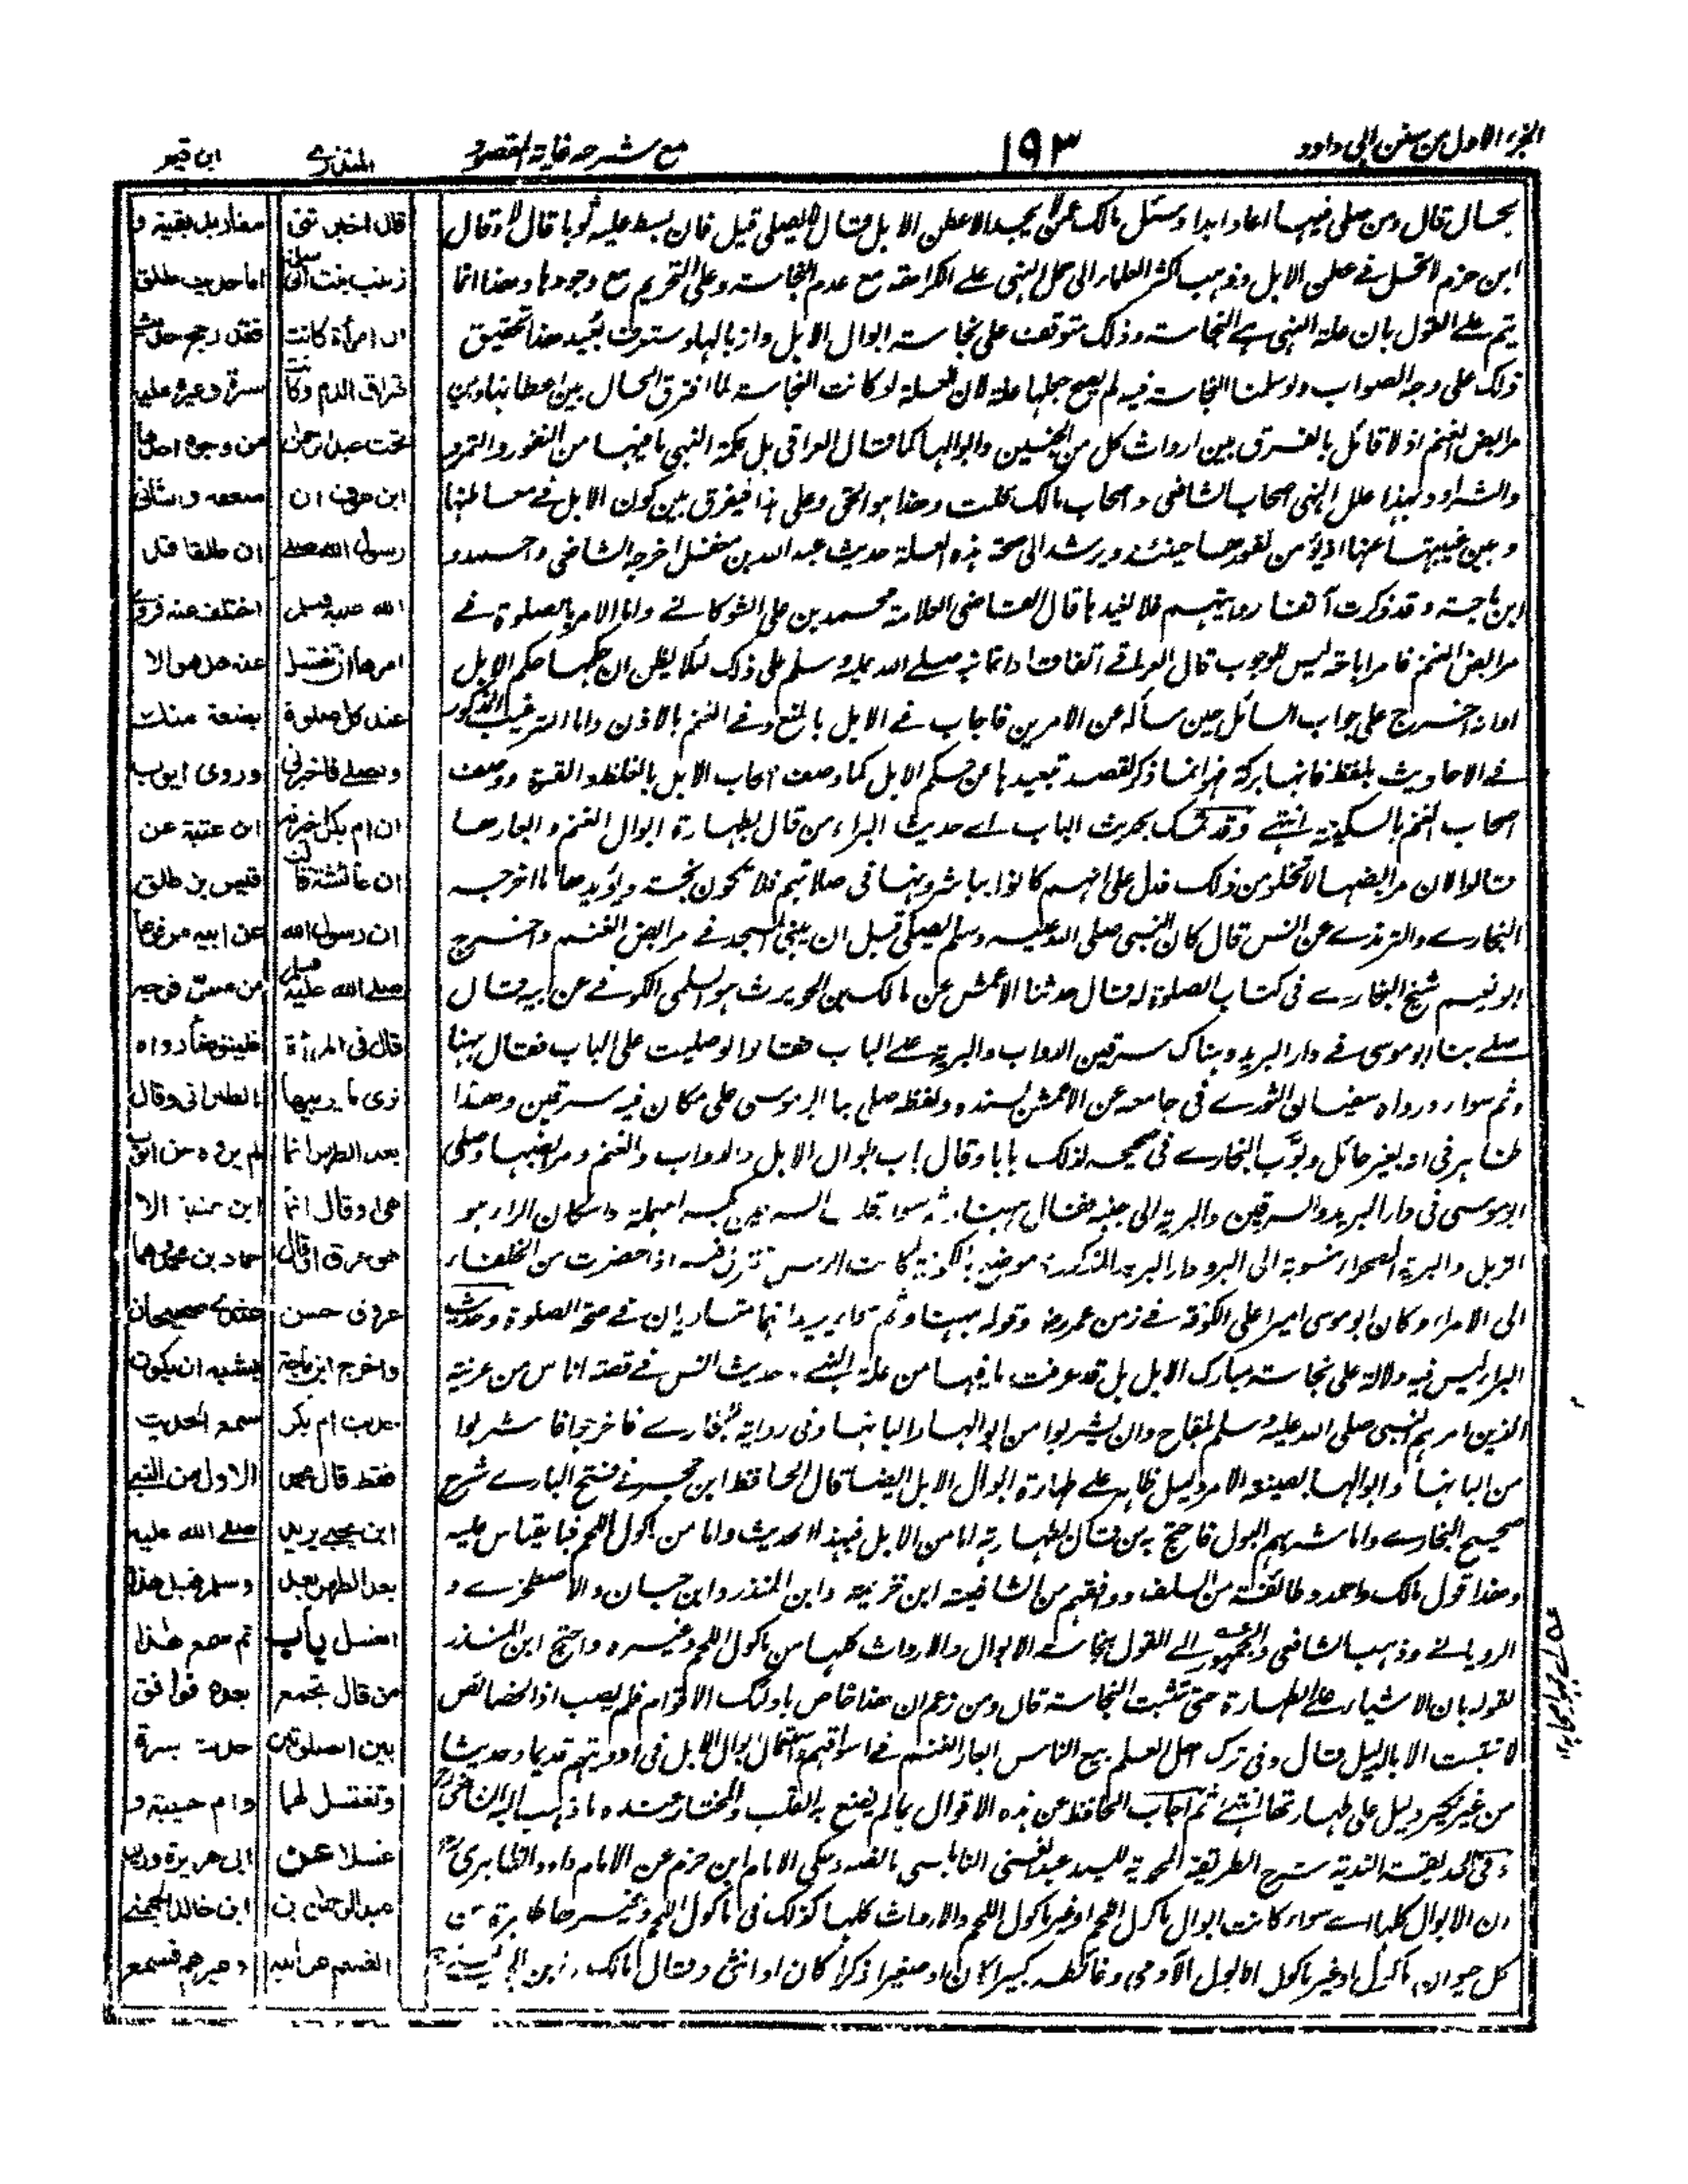 الجزء الاول من سنن ابی داود
١٩٣
مع شرحه غاية المقصود
المنذری
ابن قيم
بحال قال ومن صلی فیها اعاد ابدا وسئل مالک عمن لا یجد الا عطن الابل قال لا یصلی قیل فان بسط علیه ثوبا قال لا وقال
ابن حزم لا تحل فی عطن الابل وذهب اکثر العلماء الی حمل النهی علی الکراهة مع عدم النجاسة وعلی التحریم مع وجودها وهذا انما
یتم علی القول بان علة النهی هی النجاسة وذلک متوقف علی نجاسة ابوال الابل وازبالها وستعرف بعید هذا تحقیق
ذلک علی وجه الصواب ولو سلمنا النجاسة فیه لم یصح جعلها علة لان العلة لو کانت النجاسة لما افترق الحال بین اعطانها وبین
مرابض الغنم اذ لا قائل بالفرق بین ارواث کل من الجنسین وابوالها کما قال العراقی بل حکمة النهی ما فیها من النفور والتمرد
والشراد ولهذا علل النهی اصحاب الشافعی واصحاب مالک قلت وهذا هو الحق وعلی هذا فیفرق بین کون الابل فی معاطنها
وبین غیبتها عنها اذ یؤمن نفورها حینئذ ویرشد الی صحة هذه العلة حدیث عبد الله بن مغفل اخرجه الشافعی واحمد و
ابن ماجة وقد ذکرت آنفا روایتهم فلا نفید ما قال القاضی العلامة محمد بن علی الشوکانی واما الامر بالصلوة فی
مرابض الغنم فامر اباحة لیس للوجوب قال العراقی اتفاقا وانما نبه صلی الله علیه وسلم علی ذلک لئلا یظن ان حکمها حکم الابل
او انه اخرج علی جواب السائل حین سأله عن الامرین فاجاب فی الابل بالمنع وفی الغنم بالاذن واما الترغیب المذکور
فی الاحادیث بلفظ فانها برکة فهو انما ذکر لقصد تبعیدها عن حکم الابل کما وصف اصحاب الابل بالغلظ والقسوة ووصف
اصحاب الغنم بالسکینة انتهی وقد تمسک بحدیث الباب ای حدیث البراء من قال بطهارة ابوال الغنم وابعارها
قالوا لان مرابضها لا تخلو من ذلک فدل علی انهم کانوا یباشرونها فی صلاتهم فلا تکون نجسة ویؤیدها ما اخرجه
البخاری والترمذی عن انس قال کان النبی صلی الله علیه وسلم یصلی قبل ان یبنی المسجد فی مرابض الغنم واخرج
ابو نعیم شیخ البخاری فی کتاب الصلوة له قال حدثنا الاعمش عن مالک بن الحویرث هو السلمی الکوفی عن ابیه قال
صلی بنا ابو موسی فی دار البرید وهناک سرقین الدواب والبریة علی الباب فقالوا لو صلیت علی الباب فقال ههنا
وثم سواء ورواه سفیان الثوری فی جامعه عن الاعمش بسنده ولفظه صلی بنا ابو موسی علی مکان فیه سرقین وهذا
ظاهر فی انه بغیر حائل وبوّب البخاری فی صحیحه لذلک بابا وقال باب ابوال الابل والدواب والغنم ومرابضها وصلی
ابو موسی فی دار البرید والسرقین والبریة الی جنبه فقال ههنا وثم سواء قلت السرقین بکسر المهملة واسکان الراء هو
الزبل والبریة الصحراء منسوبة الی البر ودار البرید المذکورة موضع بالکوفة کانت الرسل تنزل فیه اذا حضرت من الخلفاء
الی الامراء وکان ابو موسی امیرا علی الکوفة فی زمن عمر رض وقوله ههنا وثم سواء یرید انهما متساویان فی صحة الصلوة وحدیث
البراء لیس فیه دلالة علی نجاسة مبارک الابل بل قد عرفت ما فیها من علة النهی وحدیث انس فی قصة اناس من عرنیة
الذین امرهم النبی صلی الله علیه وسلم بلقاح وان یشربوا من ابوالها والبانها وفی روایة للبخاری فاخرجوا فاشربوا
من البانها وابوالها بصیغة الامر دلیل ظاهر علی طهارة ابوال الابل ایضا قال الحافظ ابن حجر فی فتح الباری شرح
صحیح البخاری واما شربهم البول فاحتج به من قال بطهارته اما من الابل فبهذا الحدیث واما من ماکول اللحم فبالقیاس علیه
وهذا قول مالک واحمد وطائفة من السلف ووافقهم من الشافعیة ابن خزیمة وابن المنذر وابن حبان والاصطخری و
الرویانی وذهب الشافعی والجمهور الی القول بنجاسة الابوال والارواث کلها من ماکول اللحم وغیره واحتج ابن المنذر
لقوله بان الاشیاء علی الطهارة حتی تثبت النجاسة قال ومن زعم ان هذا خاص باولئک الاقوام فلم یصب اذ الخصائص
لا تثبت الا بدلیل قال وفی ترک اهل العلم بیع الناس ابعار الغنم فی اسواقهم واستعمال ابوال الابل فی ادویتهم قدیما وحدیثا
من غیر نکیر دلیل علی طهارتها انتهی ثم اجاب الحافظ عن هذه الاقوال بما لم یقنع به القلب والمختار عنده ما ذهب الیه الشافعی
وفی الحدیقة الندیة شرح الطریقة المحمدیة للسید عبد الغنی النابلسی ما لفظه وحکی الامام ابن حزم عن الامام داود الظاهری
ان الابوال کلها ای سواء کانت ابوال ماکول اللحم او غیر ماکول اللحم والارواث کلها کذلک فی ماکول اللحم وغیرها طاهرة من
کل حیوان ماکول او غیر ماکول الا بول الآدمی وغائطه کبیرا کان او صغیرا ذکرا کان او انثی وقال مالک
قال اخبرتنی
زینب بنت ابی سلمة
ان امرأة کانت
تهراق الدم وکانت
تحت عبد الرحمن
ابن عوف ان
رسول الله صلی
الله علیه وسلم
امرها ان تغتسل
عند کل صلوة
وتصلی فاخبرنی
ان ام بکر اخبرته
ان عائشة قالت
ان رسول الله
صلی الله علیه وسلم
قال فی المرأة
تری ما یریبها
بعد الطهر انما
هی او قال انما
هو عرق او قال
عروق حسن
واخرج ابن ماجة
حدیث ام بکر
فقط قال محمد
ابن یحیی یرید
بعد الطهر بعد
الغسل باب
من قال تجمع
بین الصلوتین
وتغتسل لهما
غسلا عن
عبد الرحمن بن
القسم عن ابیه
معاذ بل بقیة و
اما حدیث طلق
فقد رجح حدیث
بسرة وغیره علیه
من وجوه احدها
ضعفه والثانی
ان طلقا قد
اختلف عنه فروی
عنه هل هو الا
بضعة منک
وروی ایوب
ابن عتبة عن
قیس بن طلق
عن ابیه مرفوعا
من مس فرجه
فلیتوضأ رواه
الطبرانی وقال
لم یروه عن ایوب
ابن عتبة الا
حماد بن محمد وهما
عندی صحیحان
یشبه ان یکون
سمع الحدیث
الاول من النبی
صلی الله علیه
وسلم قبل هذا
ثم سمع هذا
بعده فوافق
حدیث بسرة
وام حبیبة و
ابی هریرة وزید
ابن خالد الجهنی
وغیرهم فسمع